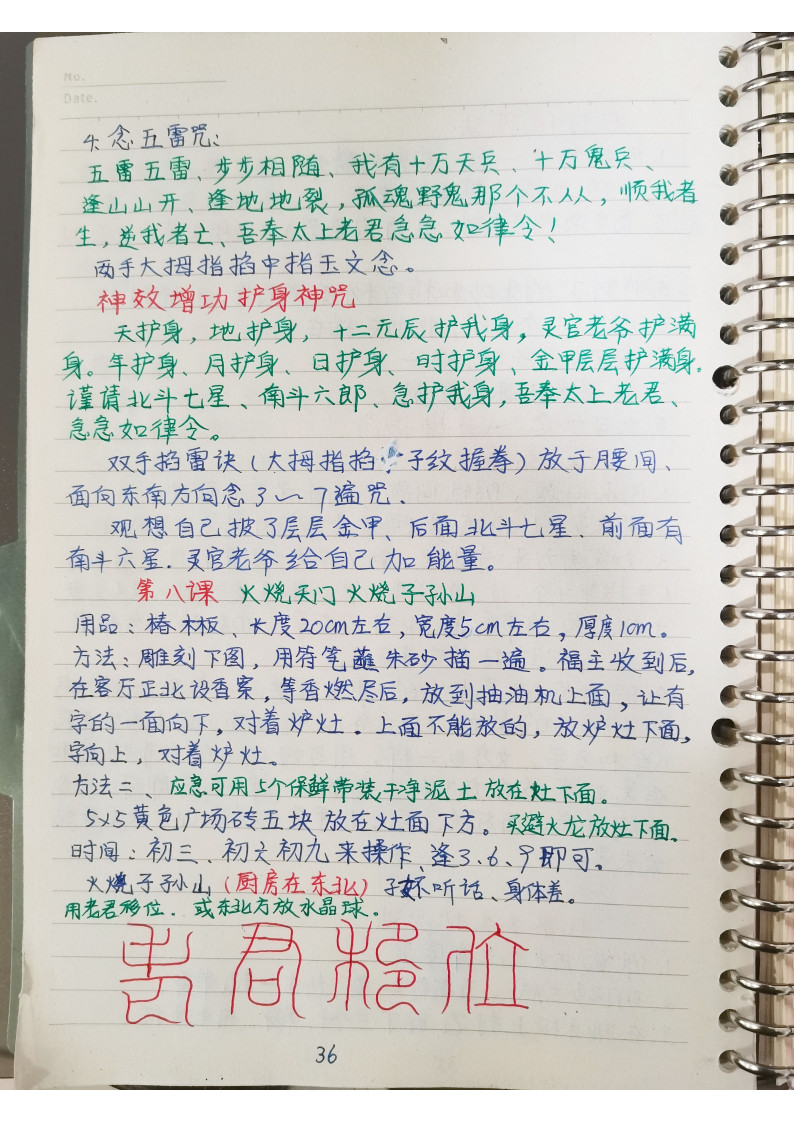 No.
Date.
4、念五雷咒：
五雷五雷、步步相随、我有十万天兵、十万鬼兵、
逢山山开、逢地地裂，孤魂野鬼那个不从，顺我者
生，逆我者亡、吾奉太上老君急急如律令！
两手大拇指掐中指玉文念。
神效增功护身神咒
天护身，地护身，十二元辰护我身，灵官老爷护满
身。年护身、月护身、日护身、时护身、金甲层层护满身.
谨请北斗七星、南斗六郎、急护我身，吾奉太上老君、
急急如律令。
双手掐雷诀（大拇指掐子纹握拳）放于腰间、
面向东南方向念3～7遍咒.
观想自己披了层层金甲、后面北斗七星、前面有
南斗六星.灵官老爷给自己加能量。
第八课 火烧天门 火烧子孙山
用品：椿木板、长度20cm左右，宽度5cm左右，厚度1cm。
方法：雕刻下图，用符笔蘸朱砂描一遍。福主收到后，
在客厅正北设香案，等香燃尽后，放到抽油机上面，让有
字的一面向下，对着炉灶.上面不能放的，放炉灶下面，
字向上，对着炉灶。
方法二、应急可用5个保鲜带装干净泥土放在灶下面。
5×5黄色广场砖五块放在灶面下方。买避火龙放灶下面.
时间：初三、初六初九来操作、逢3.6.9即可.
火烧子孙山（厨房在东北）子不听话、身体差。
用老君移位.或东北方放水晶球.
老君移位
36